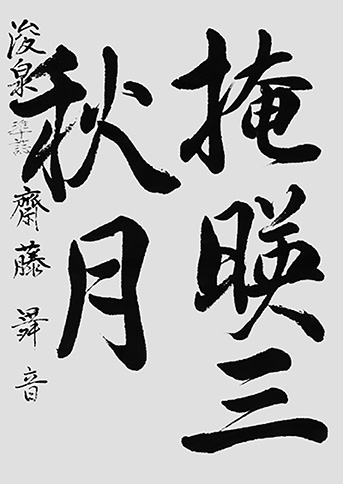 掩暎三
秋月
浚泉 準誌 齋藤 舜音